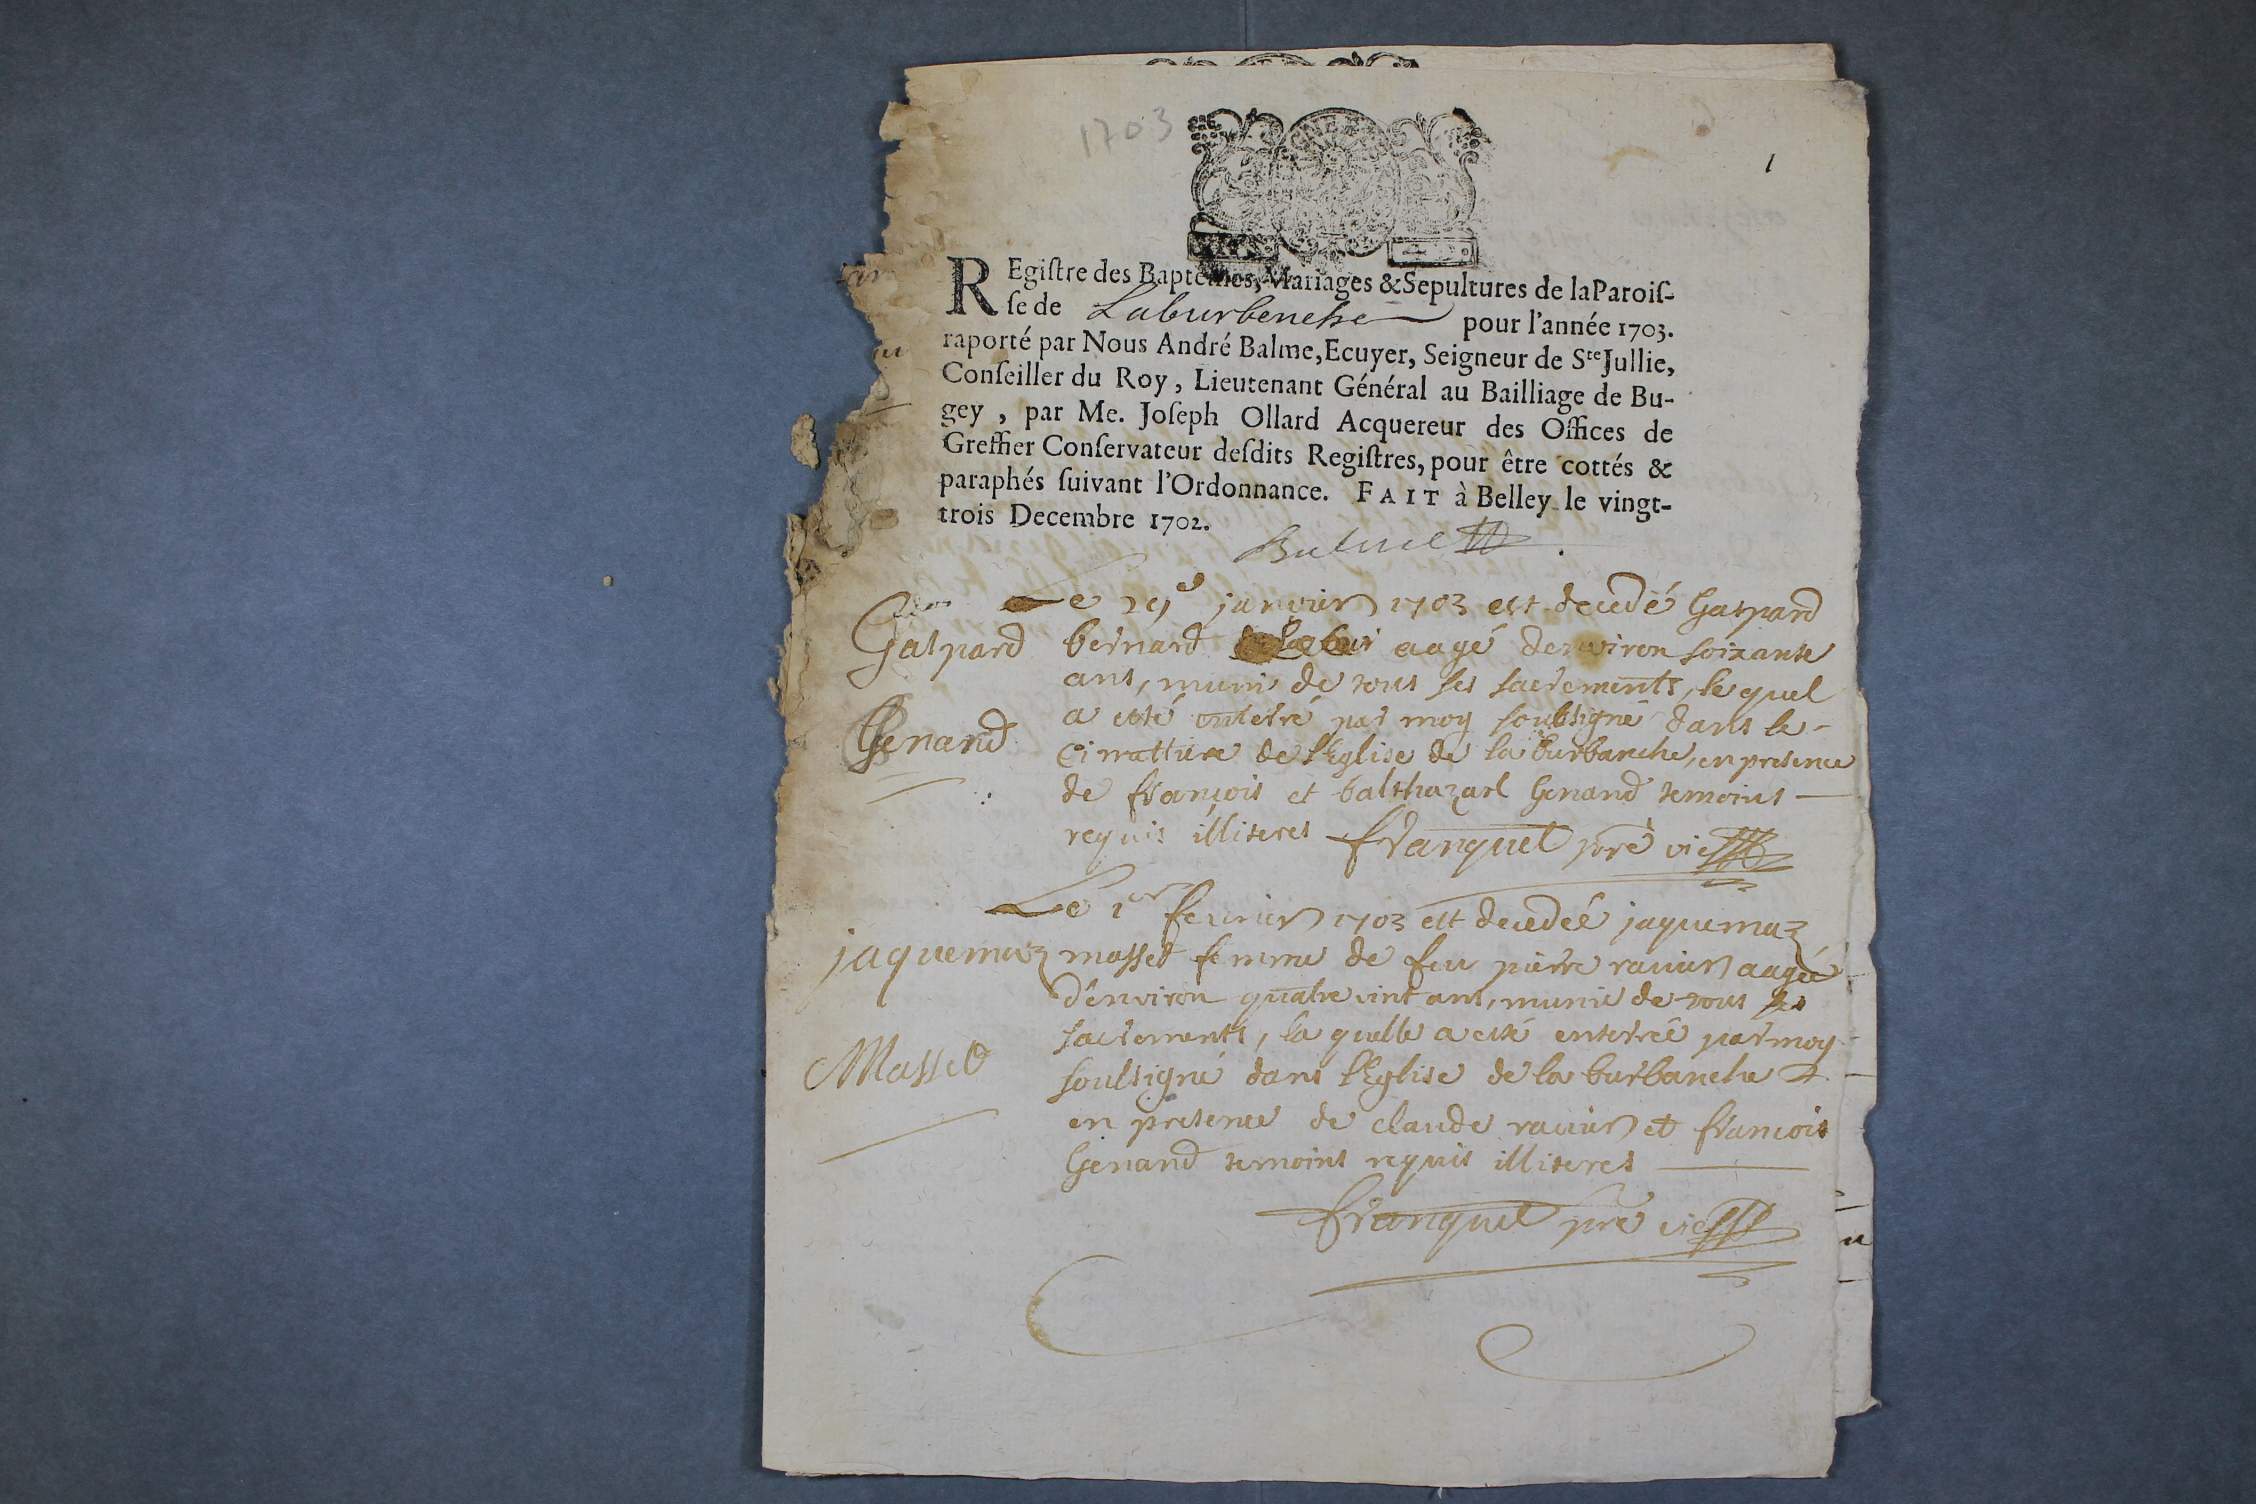 1703
1
REgiſtre des Baptêmes, Mariages & Sepultures de la Paroiſ-
ſe de Laburbenche pour l'année 1703.
raporté par Nous André Balme, Ecuyer, Seigneur de Ste Jullie,
Conſeiller du Roy, Lieutenant Général au Bailliage de Bu-
gey, par Me. Joſeph Ollard Acquereur des Offices de
Greffier Conſervateur deſdits Regiſtres, pour être cottés &
paraphés ſuivant l'Ordonnance. FAIT à Belley le vingt-
trois Decembre 1702.
Balme
Gaspard
Genand
Le janvier 1703 est decedé Gaspard
bernard aagé denviron soixante
ans, muni de tous ses sacrements, le quel
a esté enterré par moy soubsigné dans le
Cimattiere de l'Eglise de la burbanche, en presence
de françois et balthazard Genand temoins
requis illiteres franquet pbre vic
jaquemaz
Masset
Le 1er feurier 1703 est decedeé jaquemaz
masset femme de feu pierre rauier aageé
d'environ quatre vint ans, munie de tous ses
sacrements, la quelle a esté enterreé par moy
soulsigné dans l'Eglise de la burbanche
en presence de claude rauier et françois
Genand temoins requis illiteres
franquet pre vic